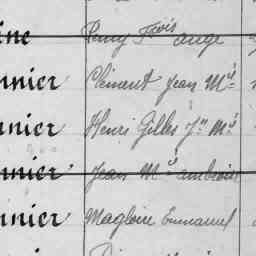 ine Remy Frois ange
nnier Clément Jean Mie
nnier Henri Gilles Jn Mie
nnier Jean Mie ambroise
nnier Magloire Emmanuel